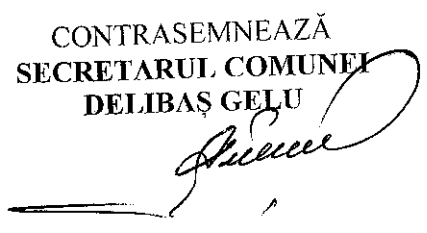 CONTRASEMNEAZĂ
SECRETARUL COMUNEI
DELIBAȘ GELU